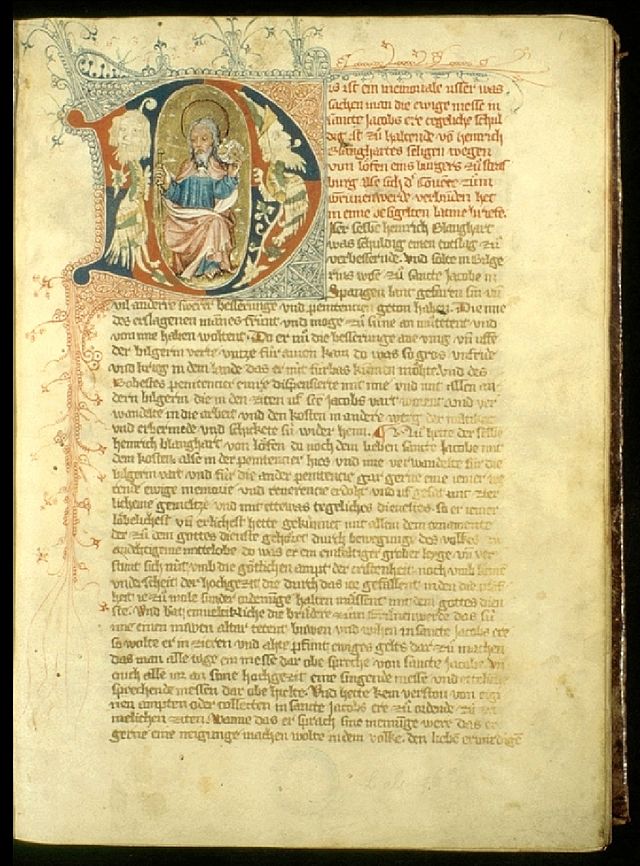 is ist ein memoriale usser was
sachen man die ewige messe in
sancte Jacobs ere tegeliche schul
dig ist zů haltende vō heinrich
Blanghartes seligen wegen
von löfen eins burgers zů stras
burg
verbunden het
Der selbe heinrich Blanghart
was schuldig einen
verbesserende. Und solte in bilge
rins wise zů sancte Jacobe in
und
vil andere swere besserunge und penitencien geton haben. Die
des erslagenen mannes frúnt und moge zů sůne an und
von ime haben woltent. Do er nů die besserunge
der bilgerin verte do was so gros
und krieg in dem lande das er nút fúrbas kumen möhte. Und des
Bobestes penitencier dispensierte mit ime und mit allen an
dern bilgerin die in den ziten uf sct Jacobs vart worent und ver
wandelte in die arbeit und den kosten in andere werg der
und und schickete sú wider heim. Nů hette der selbe
heinrich blanghart von löfen do noch dem lieben sancte Jacobe mit
dem kosten alse in der penitencier hies und ime verwandelte fúr die
bilgerin vart und fúr die ander penitencie gar gerne eine iemer we
rende ewige memorie und reverencie erdoht und uf gesat mit
licheme gemůte und mit ettewas tegeliches dienstes so er iemer
löbelichest und erlichest hette gekunnet mit allem dem ornamente
der zů dem gottes dienste gehöret durch bewegunge des volkes zů
andehtigeme mittelobe. do was er ein einfaltiger grober leyge. und ver
stunt sich nút umb die götlichen ampt der cristenheit noch umb keine
underscheit der hochgezit die durch das ior gefallent in den die
heit ze male sunder ordenunge halten můssent mit dem gottes dien
ste. Und bat die brůdere zům Grůnenwerde das sú
ime einen nuwen altar tetent buwen und wihen in sancte Jacobs ere
so wolte er in zieren und ahte pfunt ewiges geltes dar zů machen
das man alle tage ein messe dar obe spreche von sancte Jacobe. Und
ouch alle ior an sime hochgezit eine singende messe und
sprechende messen dar obe hielte. Und hette kein verston von eigi
nen ampten oder collecten in sancte Jacobs ere zů ordende zů
melichen ziten. Wanne das er sprach sine meinunge were das er
gerne eine neigunge machen wolte in dem volke. den lieben erwirdigen